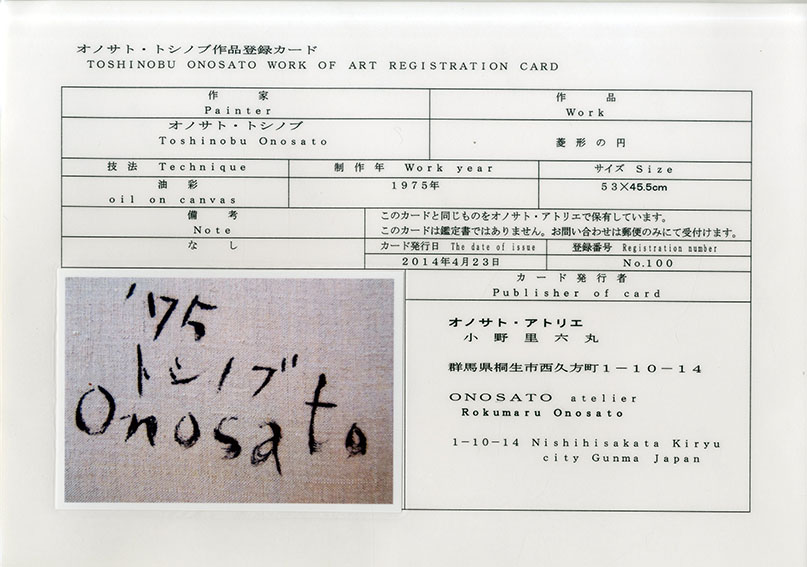 オノサト・トシノブ作品登録カード
TOSHINOBU ONOSATO WORK OF ART REGISTRATION CARD
作 家
Painter
作 品
Work
オノサト・トシノブ
Toshinobu Onosato
菱形の円
技法 Technique
制作年 Work year
サイズ Size
油 彩
oil on canvas
1975年
53×45.5cm
備 考
Note
このカードと同じものをオノサト・アトリエで保有しています。
このカードは鑑定書ではありません。お問い合わせは郵便のみにて受付けます。
なし
カード発行日 The date of issue
登録番号 Registration number
2014年4月23日
No.100
カード発行者
Publisher of card
'75
トシノブ
Onosato
オノサト・アトリエ
小野里六丸
群馬県桐生市西久方町1-10-14
ONOSATO atelier
Rokumaru Onosato
1-10-14 Nishihisakata Kiryu
city Gunma Japan